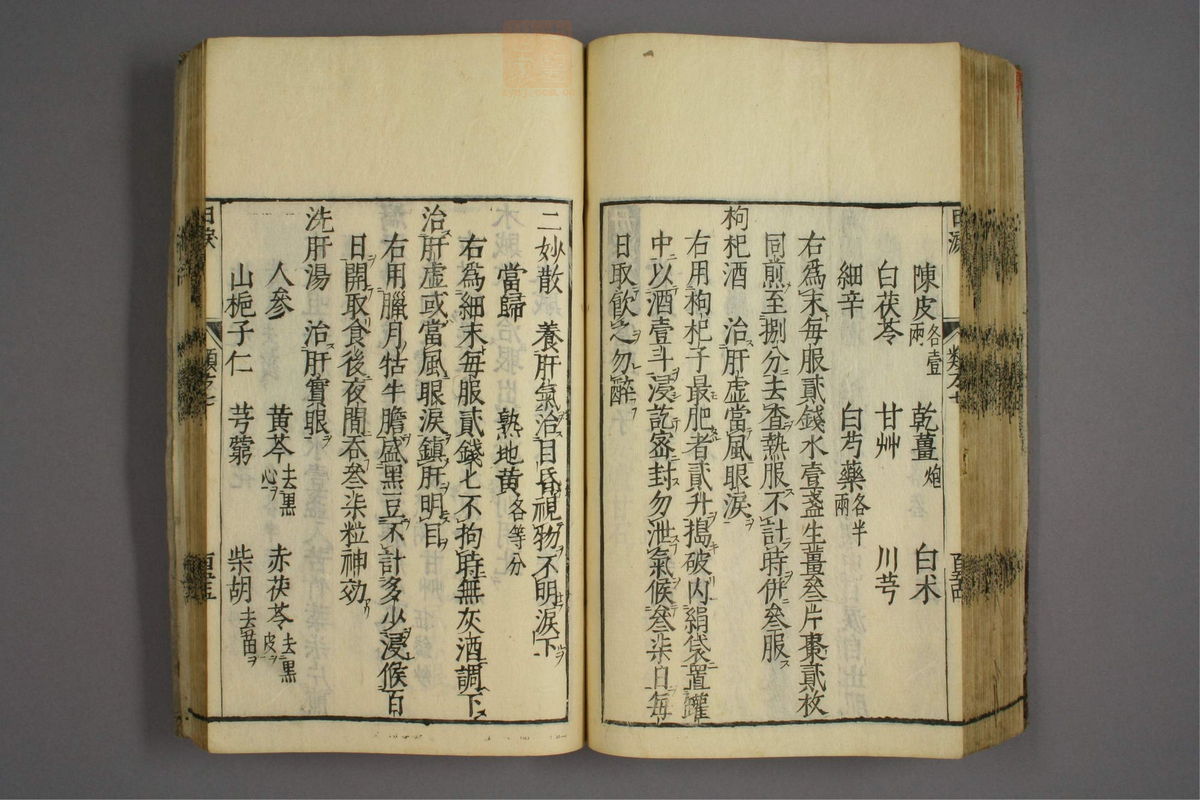 陳皮各壹兩 乾薑炮 白朮
白茯苓 甘艸 川芎
細辛 白芍藥各半兩
右爲末每服貳錢水壹盞生薑叄片棗貳枚
同煎至捌分去査熱服不計時併叄服
枸杞酒 治肝虚當風眼淚
右用枸杞子最肥者貳升搗破内絹袋置鑵
中以酒壹斗浸訖宻封勿泄氣候叄柒日每
日取飮之勿醉
二妙散 養肝氣治目昏視物不明淚下
當歸 熟地黄各等分
右爲細末每服貳錢匕不拘時無灰酒調下
治肝虚或當風眼淚鎭肝明目
右用臘月牯牛膽盛黒豆不計多少浸候百
日開取食後夜間吞叄柒粒神効
洗肝湯 治肝實眼
人參 黄芩去黒心 赤茯苓去黒皮
山梔子仁 芎藭 柴胡去苗